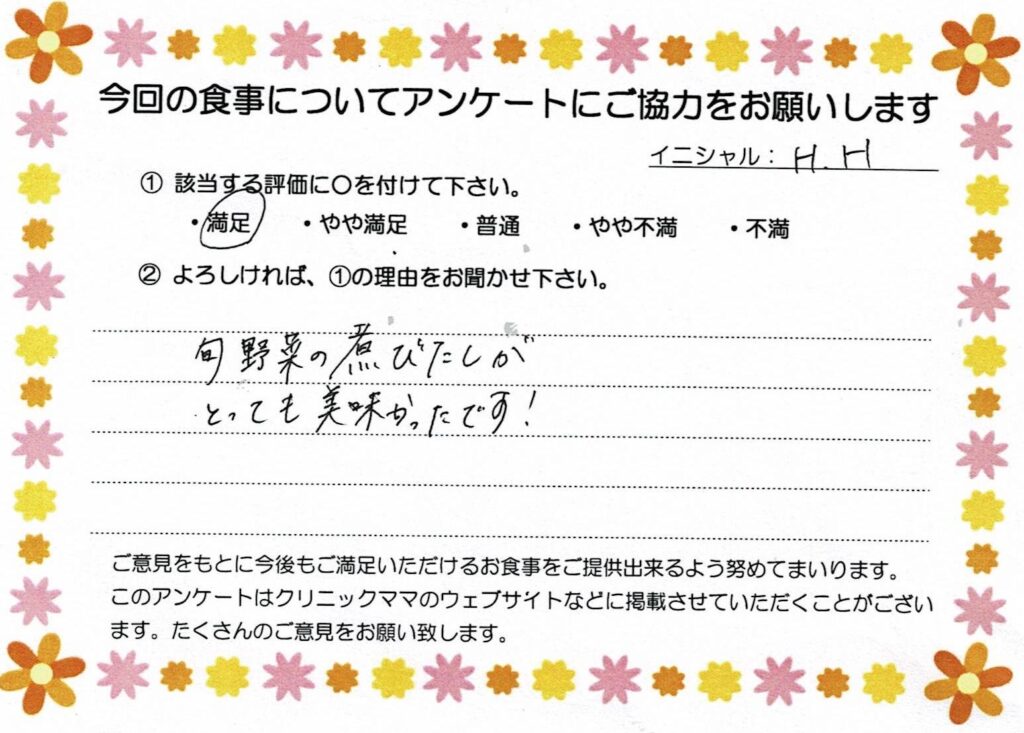 今回の食事についてアンケートにご協力をお願いします
イニシャル： H.H
① 該当する評価に〇を付けて下さい。
・満足 ・やや満足 ・普通 ・やや不満 ・不満
② よろしければ、①の理由をお聞かせ下さい。
旬野菜の煮びたしが
とっても美味かったです!
ご意見をもとに今後もご満足いただけるお食事をご提供出来るよう努めてまいります。
このアンケートはクリニックママのウェブサイトなどに掲載させていただくことがござい
ます。たくさんのご意見をお願い致します。